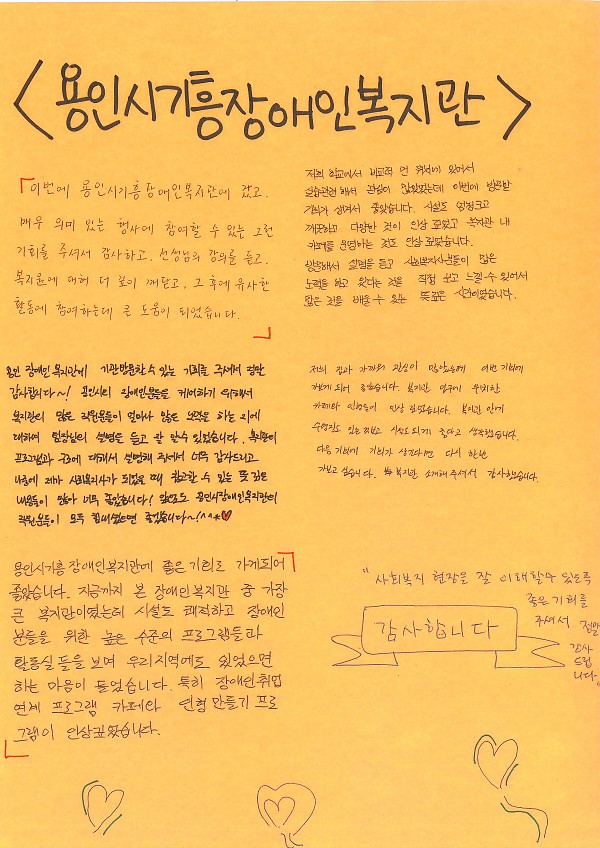 <용인시기흥장애인복지관>
「이번에 용인시기흥장애인복지관에 갔고,
매우 의미 있는 행사에 참여할 수 있는 그런
기회를 주셔서 감사하고, 선생님의 강의를 듣고,
복지관에 대해 더 깊이 깨닫고, 그 후에 유사한
활동에 참여하는데 큰 도움이 되었습니다.」
저희 학교에서 비교적 먼 위치에 있어서
실습관련해서 관심이 많았었는데 이번에 방문할
기회가 생겨서 좋았습니다. 시설도 엄청크고
깨끗하고 다양한 것이 인상 깊었고 복지관 내
카페를 운영하는 것도 인상 깊었습니다.
방문해서 설명을 듣고 사회복지사분들이 많은
노력을 하고 있다는 것을 직접 보고 느낄 수 있어서
많은 것을 배울 수 있는 뜻깊은 시간이였습니다.
용인 장애인 복지관에 기관방문할 수 있는 기회를 주셔서 정말
감사합니다~! 용인시의 장애인분들을 케어하기 위해서
복지관의 많은 직원분들이 얼마나 많은 노력을 하는 지에
대하여 팀장님의 설명을 듣고 잘 알 수 있었습니다. 복지관의
프로그램과 구조에 대해서 설명해 주셔서 너무 감사드리고
나중에 제가 사회복지사가 되었을 때 참고할 수 있는 뜻 깊은
내용들이 많아 너무 좋았습니다! 앞으로도 용인시장애인복지관의
직원분들이 모두 힘내셨으면 좋겠습니다~!^^*♥
저희 집과 가까워 관심이 많았는데 이번 기회에
가보게 되어 좋았습니다. 복지관 입구에 위치한
카페와 인형들이 인상 깊었습니다. 복지관 안에
수영장도 있는 것보고 시설도 되게 좋다고 생각했습니다.
다음 기회에 기회가 생긴다면 다시 한번
가보고 싶습니다. 복지관 소개해주셔서 감사했습니다.
용인시기흥장애인복지관에 좋은 기회로 가게되어
좋았습니다. 지금까지 본 장애인복지관 중 가장
큰 복지관이였는데 시설도 쾌적하고 장애인
분들을 위한 높은 수준의 프로그램들과
활동실 들을 보며 우리지역에도 있었으면
하는 마음이 들었습니다. 특히 장애인취업
연계 프로그램 카페와 인형만들기 프로
그램이 인상깊었습니다.
"사회복지 현장을 잘 이해할수 있도록
좋은 기회를
주셔서 정말
감사
드립
니다"
감사합니다